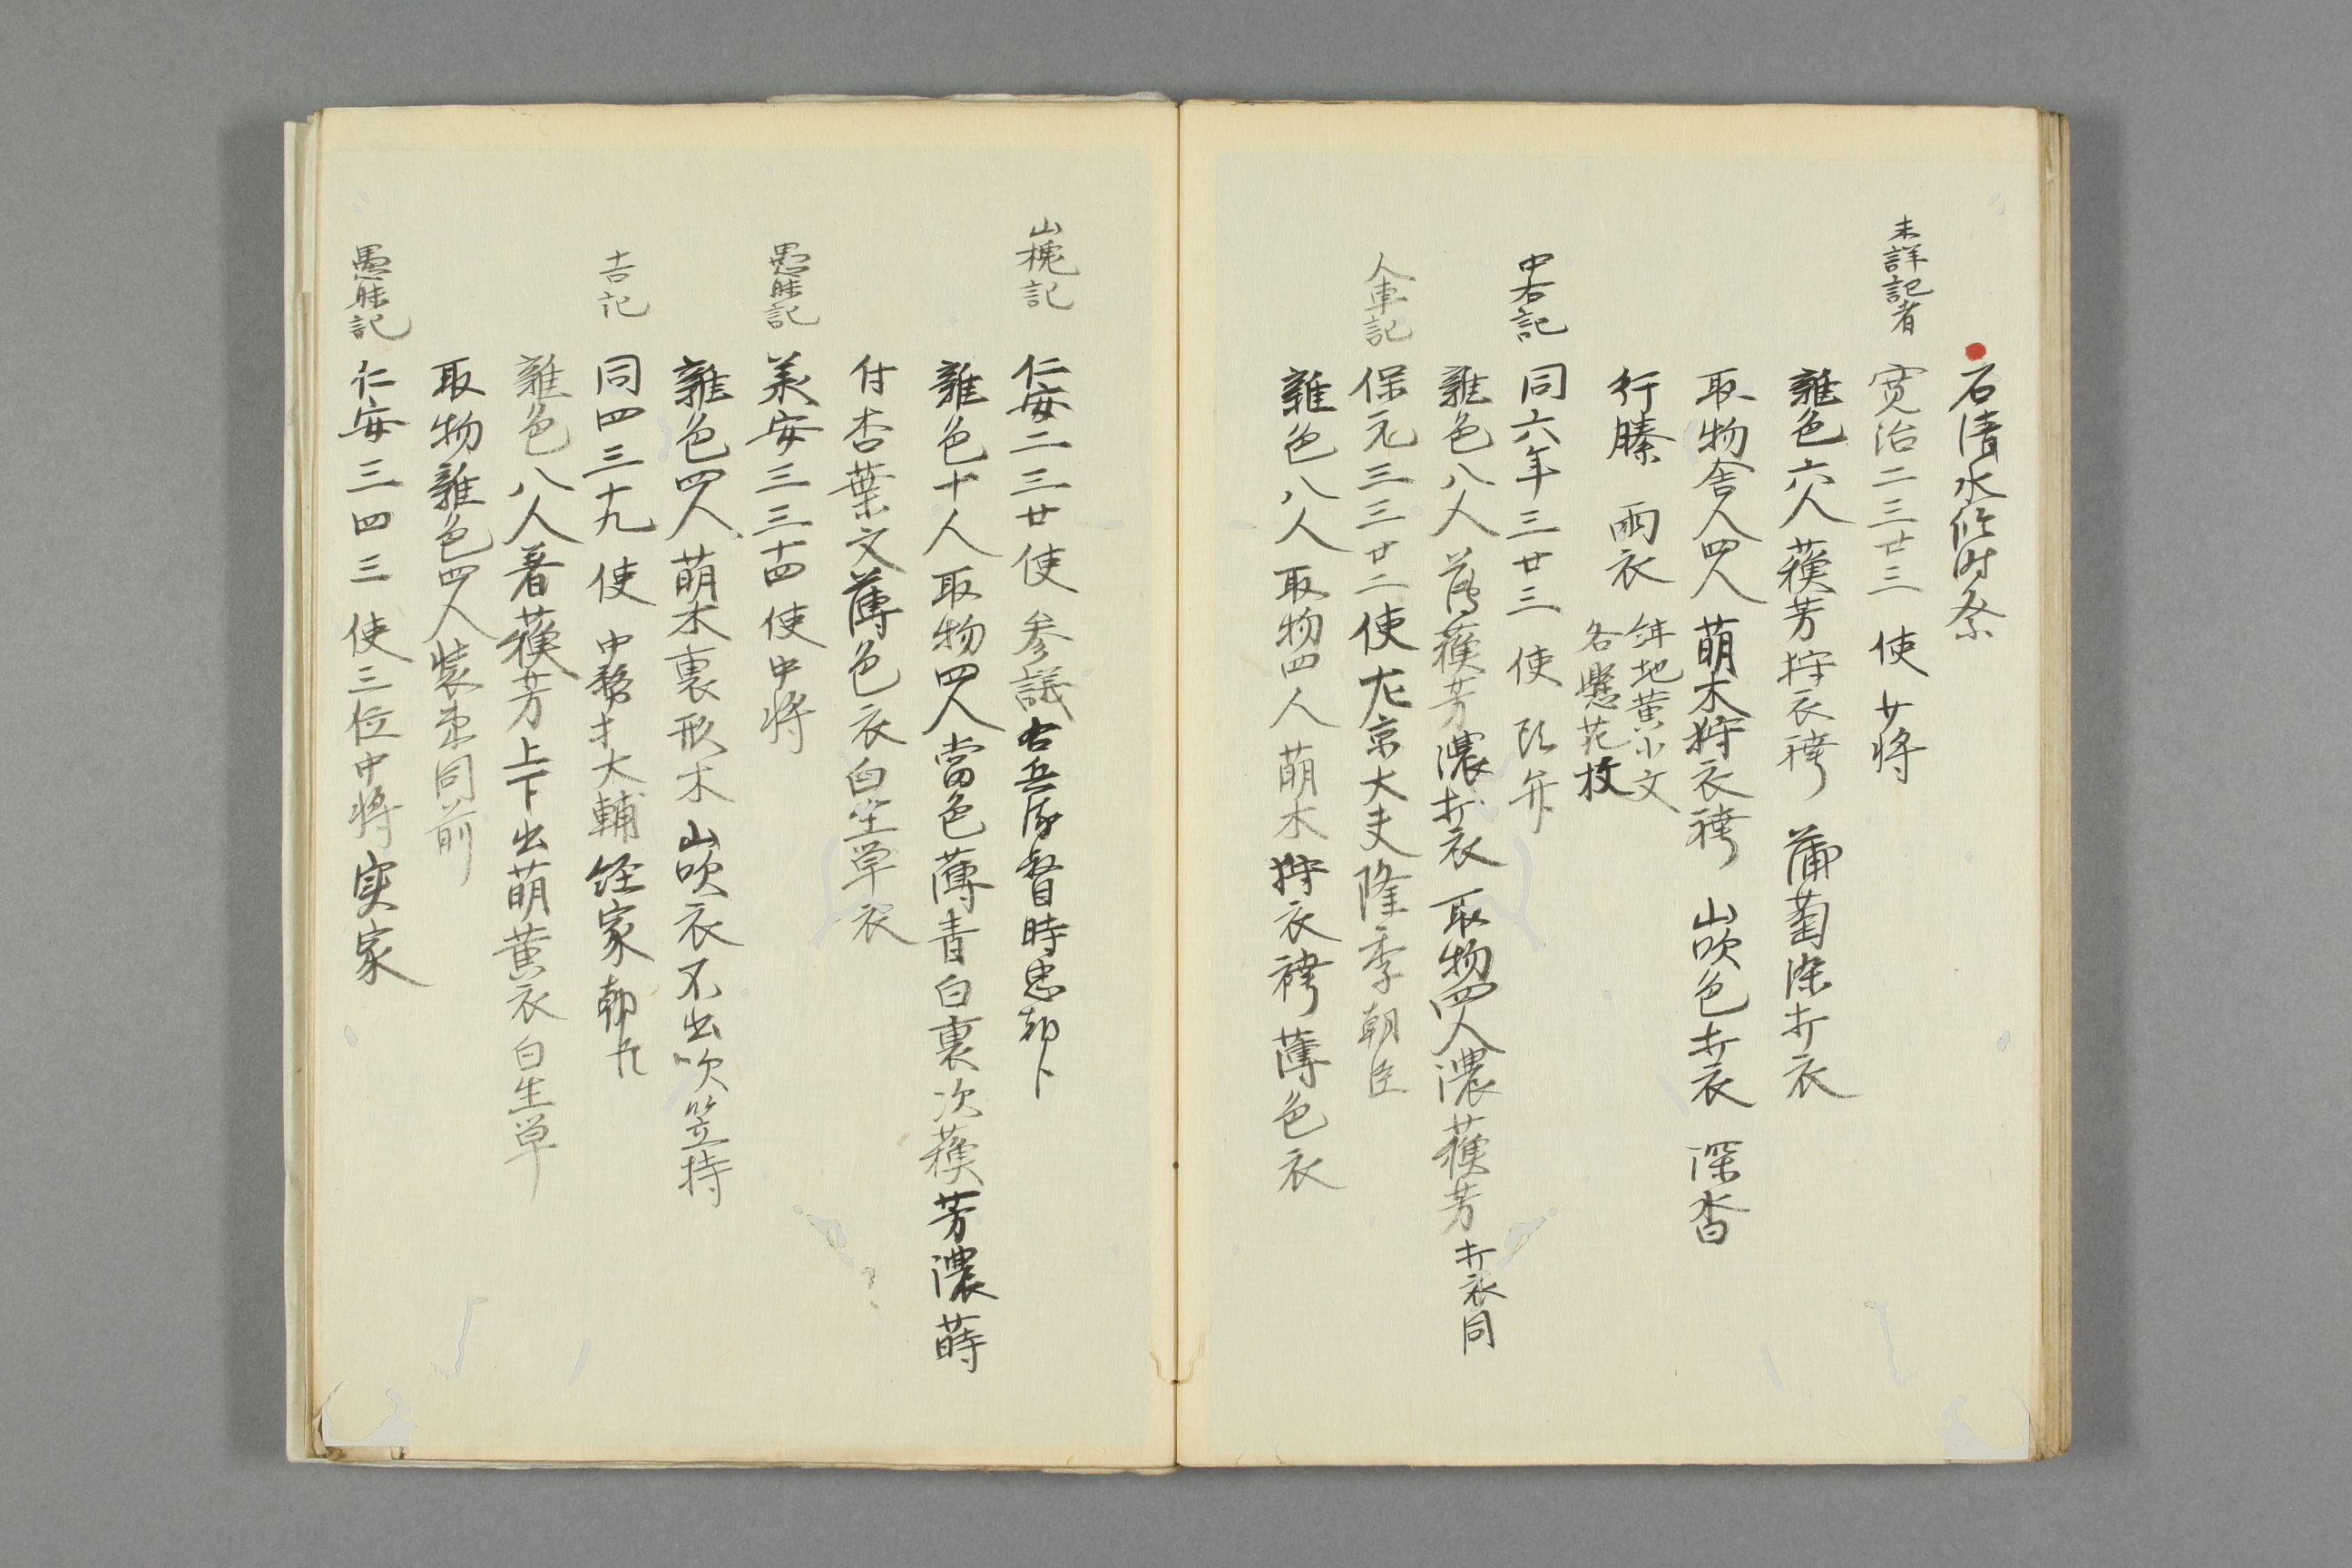 石清水臨時祭
未詳記者
寛治二三廿三 使 少将
雜色六人蘓芳狩衣袴 蒲萄染打衣
取物舎人四人萌木狩衣袴 山吹色打衣 深沓
行騰 雨衣
餅地黄小文
各懸花枝
中右記
同六年三廿三 使 頭弁
雜色八人着蘓芳濃打衣 取物四人濃蘓芳打衣同
人車記
保元三三廿二使左京大夫隆季朝臣
雜色八人取物四人萌木狩衣袴薄色衣
山槐記
仁安二三廿使 参議右兵衛督時忠卿
雜色十人取物四人當色薄青白裏次蘓芳濃蒔
付杏葉文薄色衣白生単衣
愚昧記
美安三三十四使中将
雜色四人萌木裏形木 山吹衣不出吹笠持
吉記
同四三十九 使 中務大輔経家朝臣
雜色八人著蘓芳上下出萌黄衣白生単
取物雜色四人裝束同前
愚昧記
仁安三四三 使三位中将実家